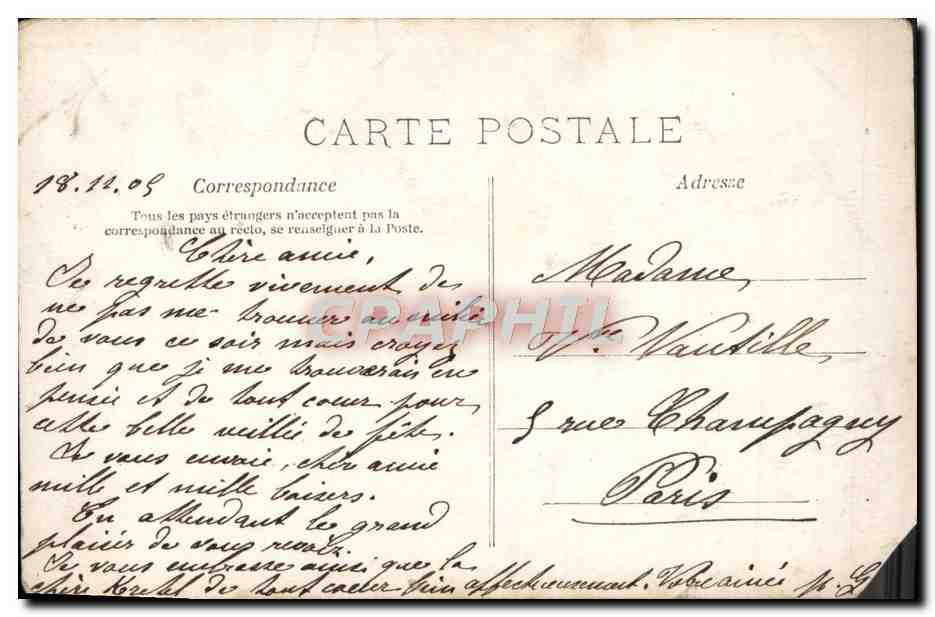 CARTE POSTALE
18.11.05 Correspondance
Tous les pays étrangers n'acceptent pas la
correspondance au recto, se renseigner à la Poste.
Chère amie,
Je regrette vivement de
ne pas me trouver au milieu
de vous ce soir mais croyez
bien que je me trouverais en
pensée et de tout coeur pour
cette belle veillée de fête.
Je vous envoie, chère amie
mille et mille baisers.
En attendant le grand
plaisir de vous revoir.
Je vous embrasse ainsi que la
chère de tout coeur bien affectueusement. Votre amie
Adresse
Madame
Vve Vautille
5 rue Champagny
Paris
CPAPHIL